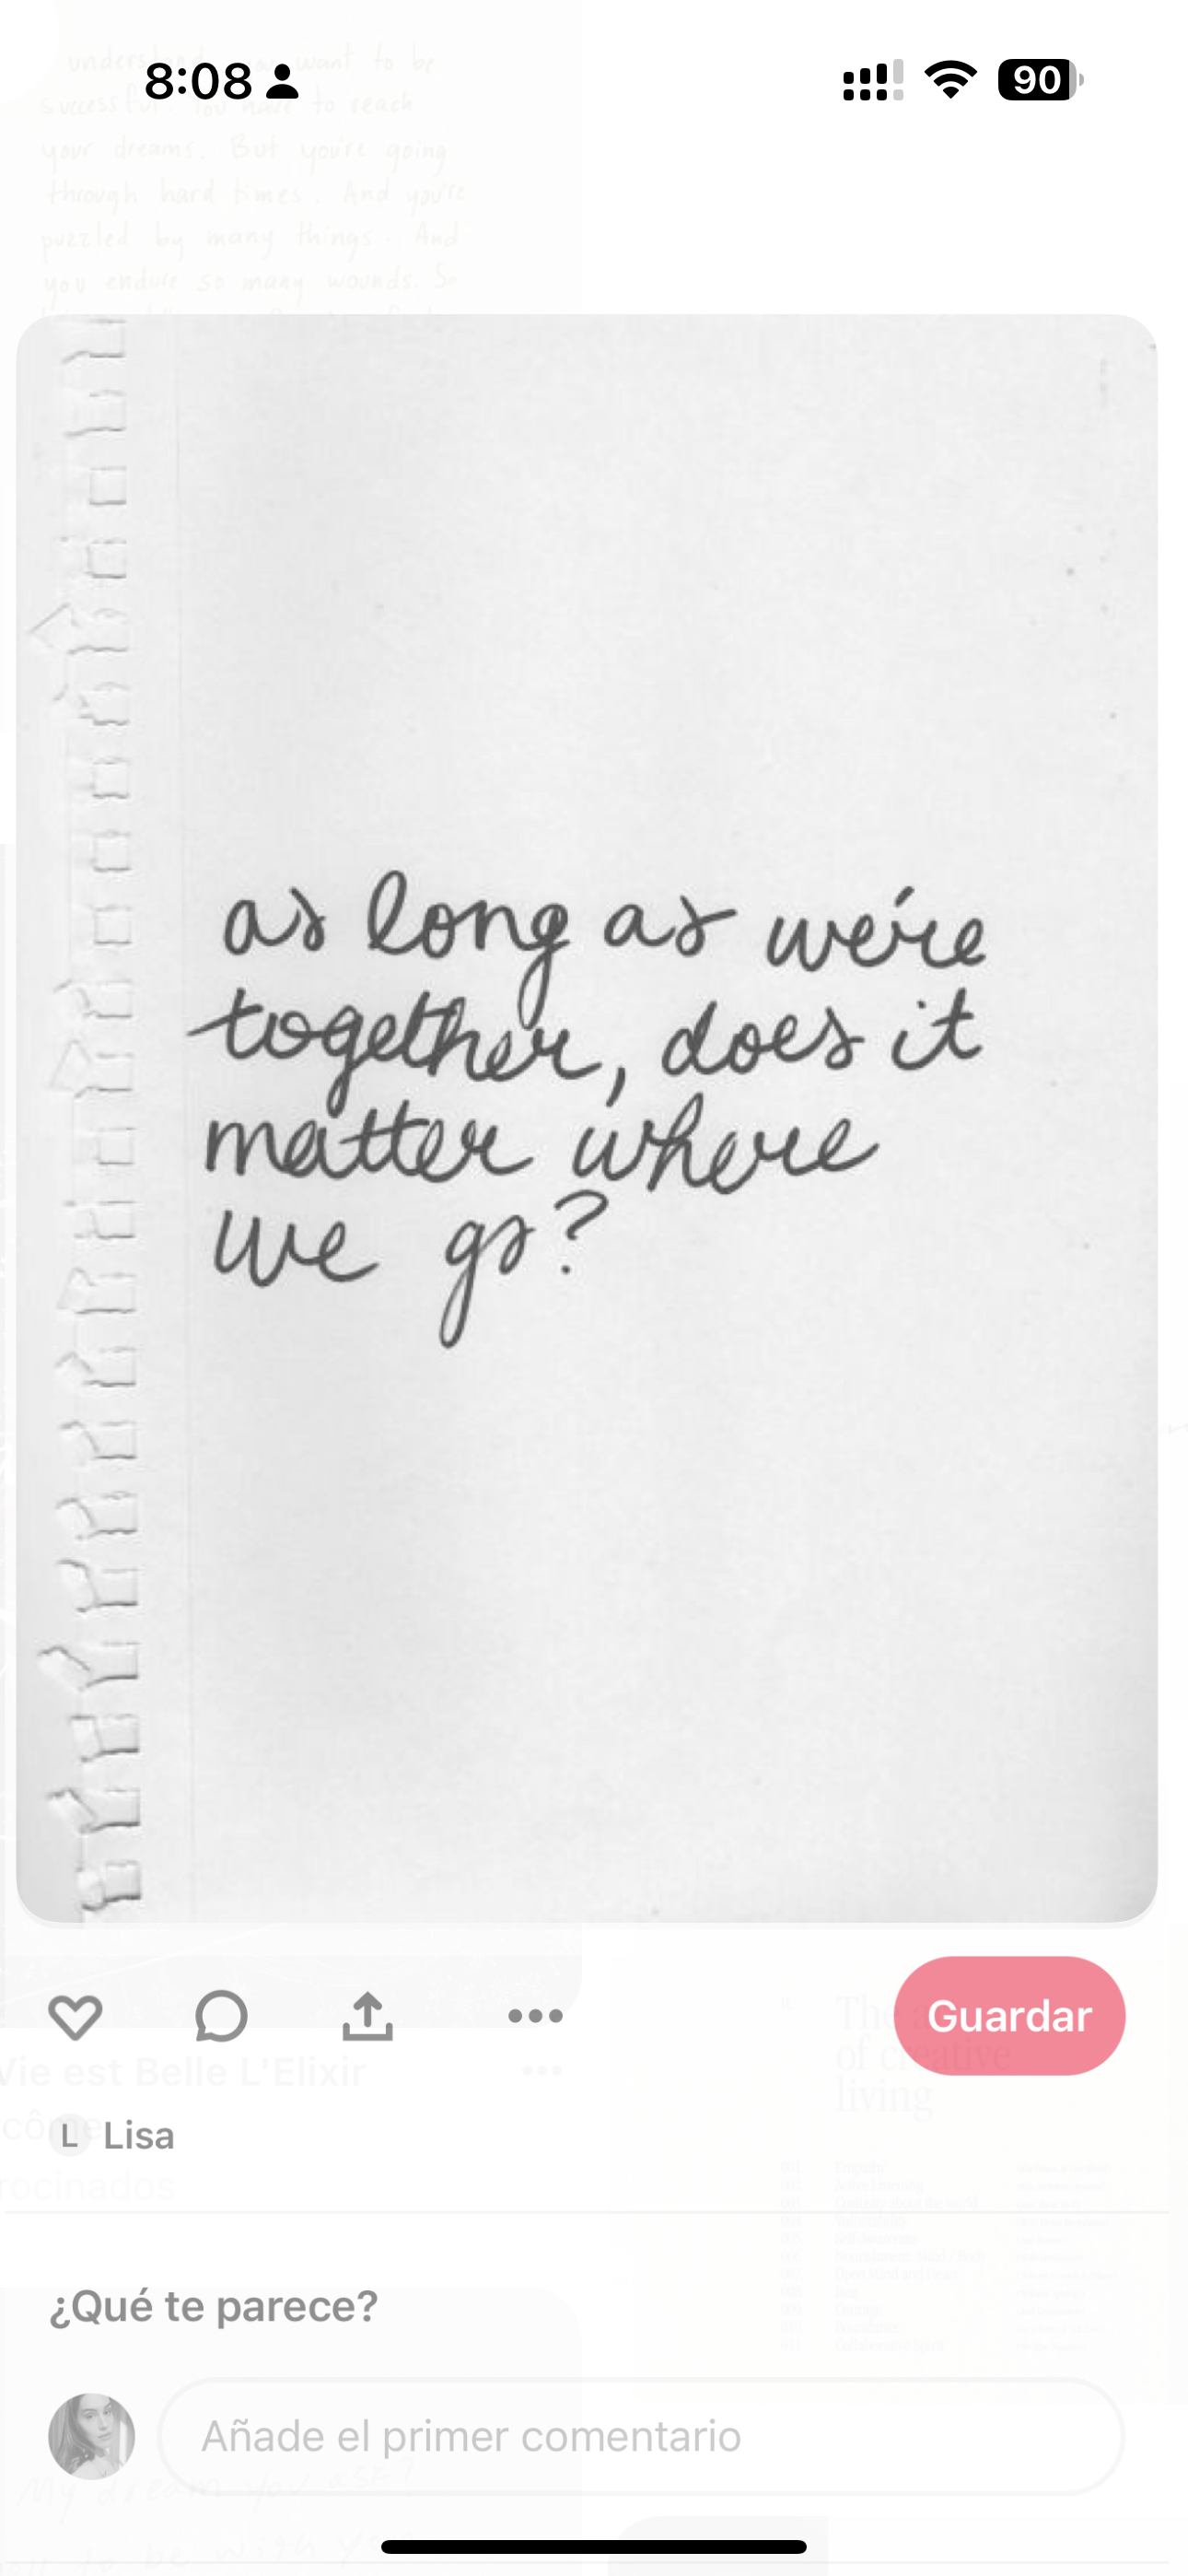 understood you want to be
8:08
90
successful. You have to reach
your dreams. But you're going
through hard times. And you're
puzzled by many things. And
you endure so many wounds. So
as long as we're
together, does it
matter where
we go?
Guardar
The a
of creative
living
Vie est Belle L'Elixir
Lisa
rocinados
¿Qué te parece?
Añade el primer comentario
My dream you ask?
to be with you